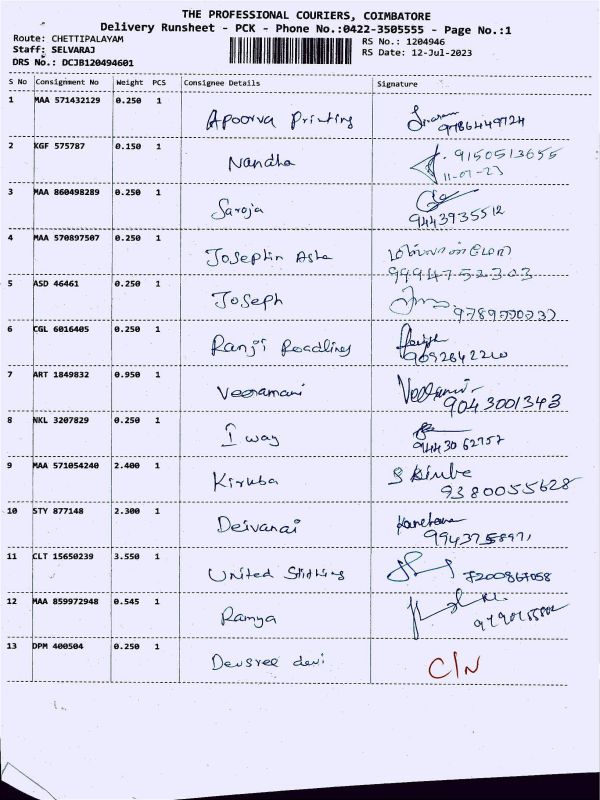 THE PROFESSIONAL COURIERS, COIMBATORE
Delivery Runsheet - PCK - Phone No.:0422-3505555 - Page No.:1
Route: CHETTIPALAYAM
RS No.: 1204946
Staff: SELVARAJ
RS Date: 12-Jul-2023
DRS No.: DCJB120494601
S No Consignment No Weight PCS Consignee Details Signature
1 MAA 571432129 0.250 1 Apoorva Printing
9786449724
2 KGF 575787 0.150 1 Nandha 9150513655
11-07-23
3 MAA 860498289 0.250 1 Saroja
9443935512
4 MAA 570897507 0.250 1 Josephin Asha
9994752303
5 ASD 46461 0.250 1 Joseph
6 CGL 6016405 0.250 1 Ranji Roadlines
9092842210
7 ART 1849832 0.950 1 Veeramani Veeramani
9043001343
8 NKL 3207829 0.250 1 I way
9443062757
9 MAA 571054240 2.400 1 Kiruba S Kiruba
9380055628
10 STY 877148 2.300 1 Deivanai
11 CLT 15650239 3.550 1 United Stithing 7200867058
12 MAA 859972948 0.545 1 Ramya
13 DPM 400504 0.250 1 Devsree devi C/N